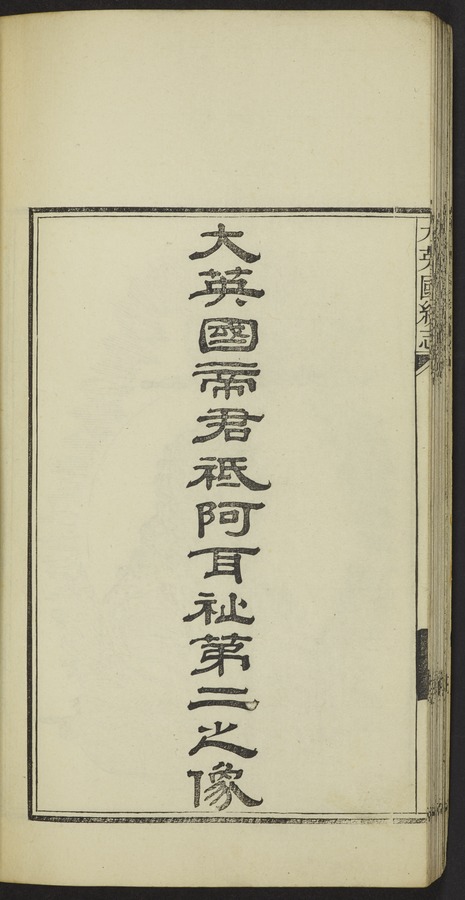 大英國統志
大英國帝君祗阿耳祉第二之像